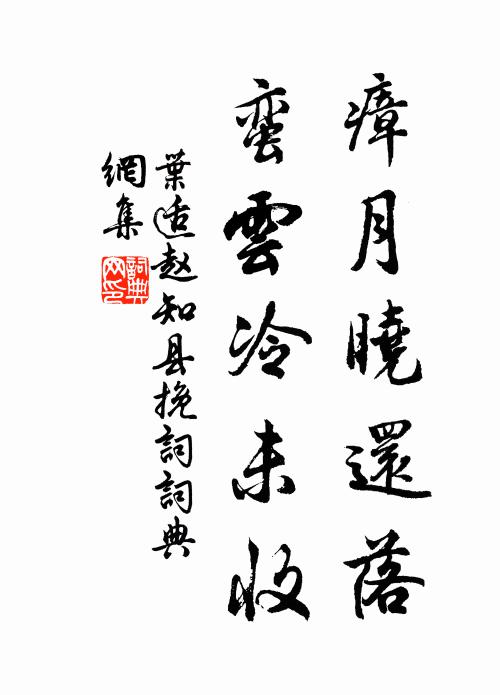 瘴月曉還落
蛮雲冷未收
葉适赵知县挽詞詞典
網集
詞典
网印